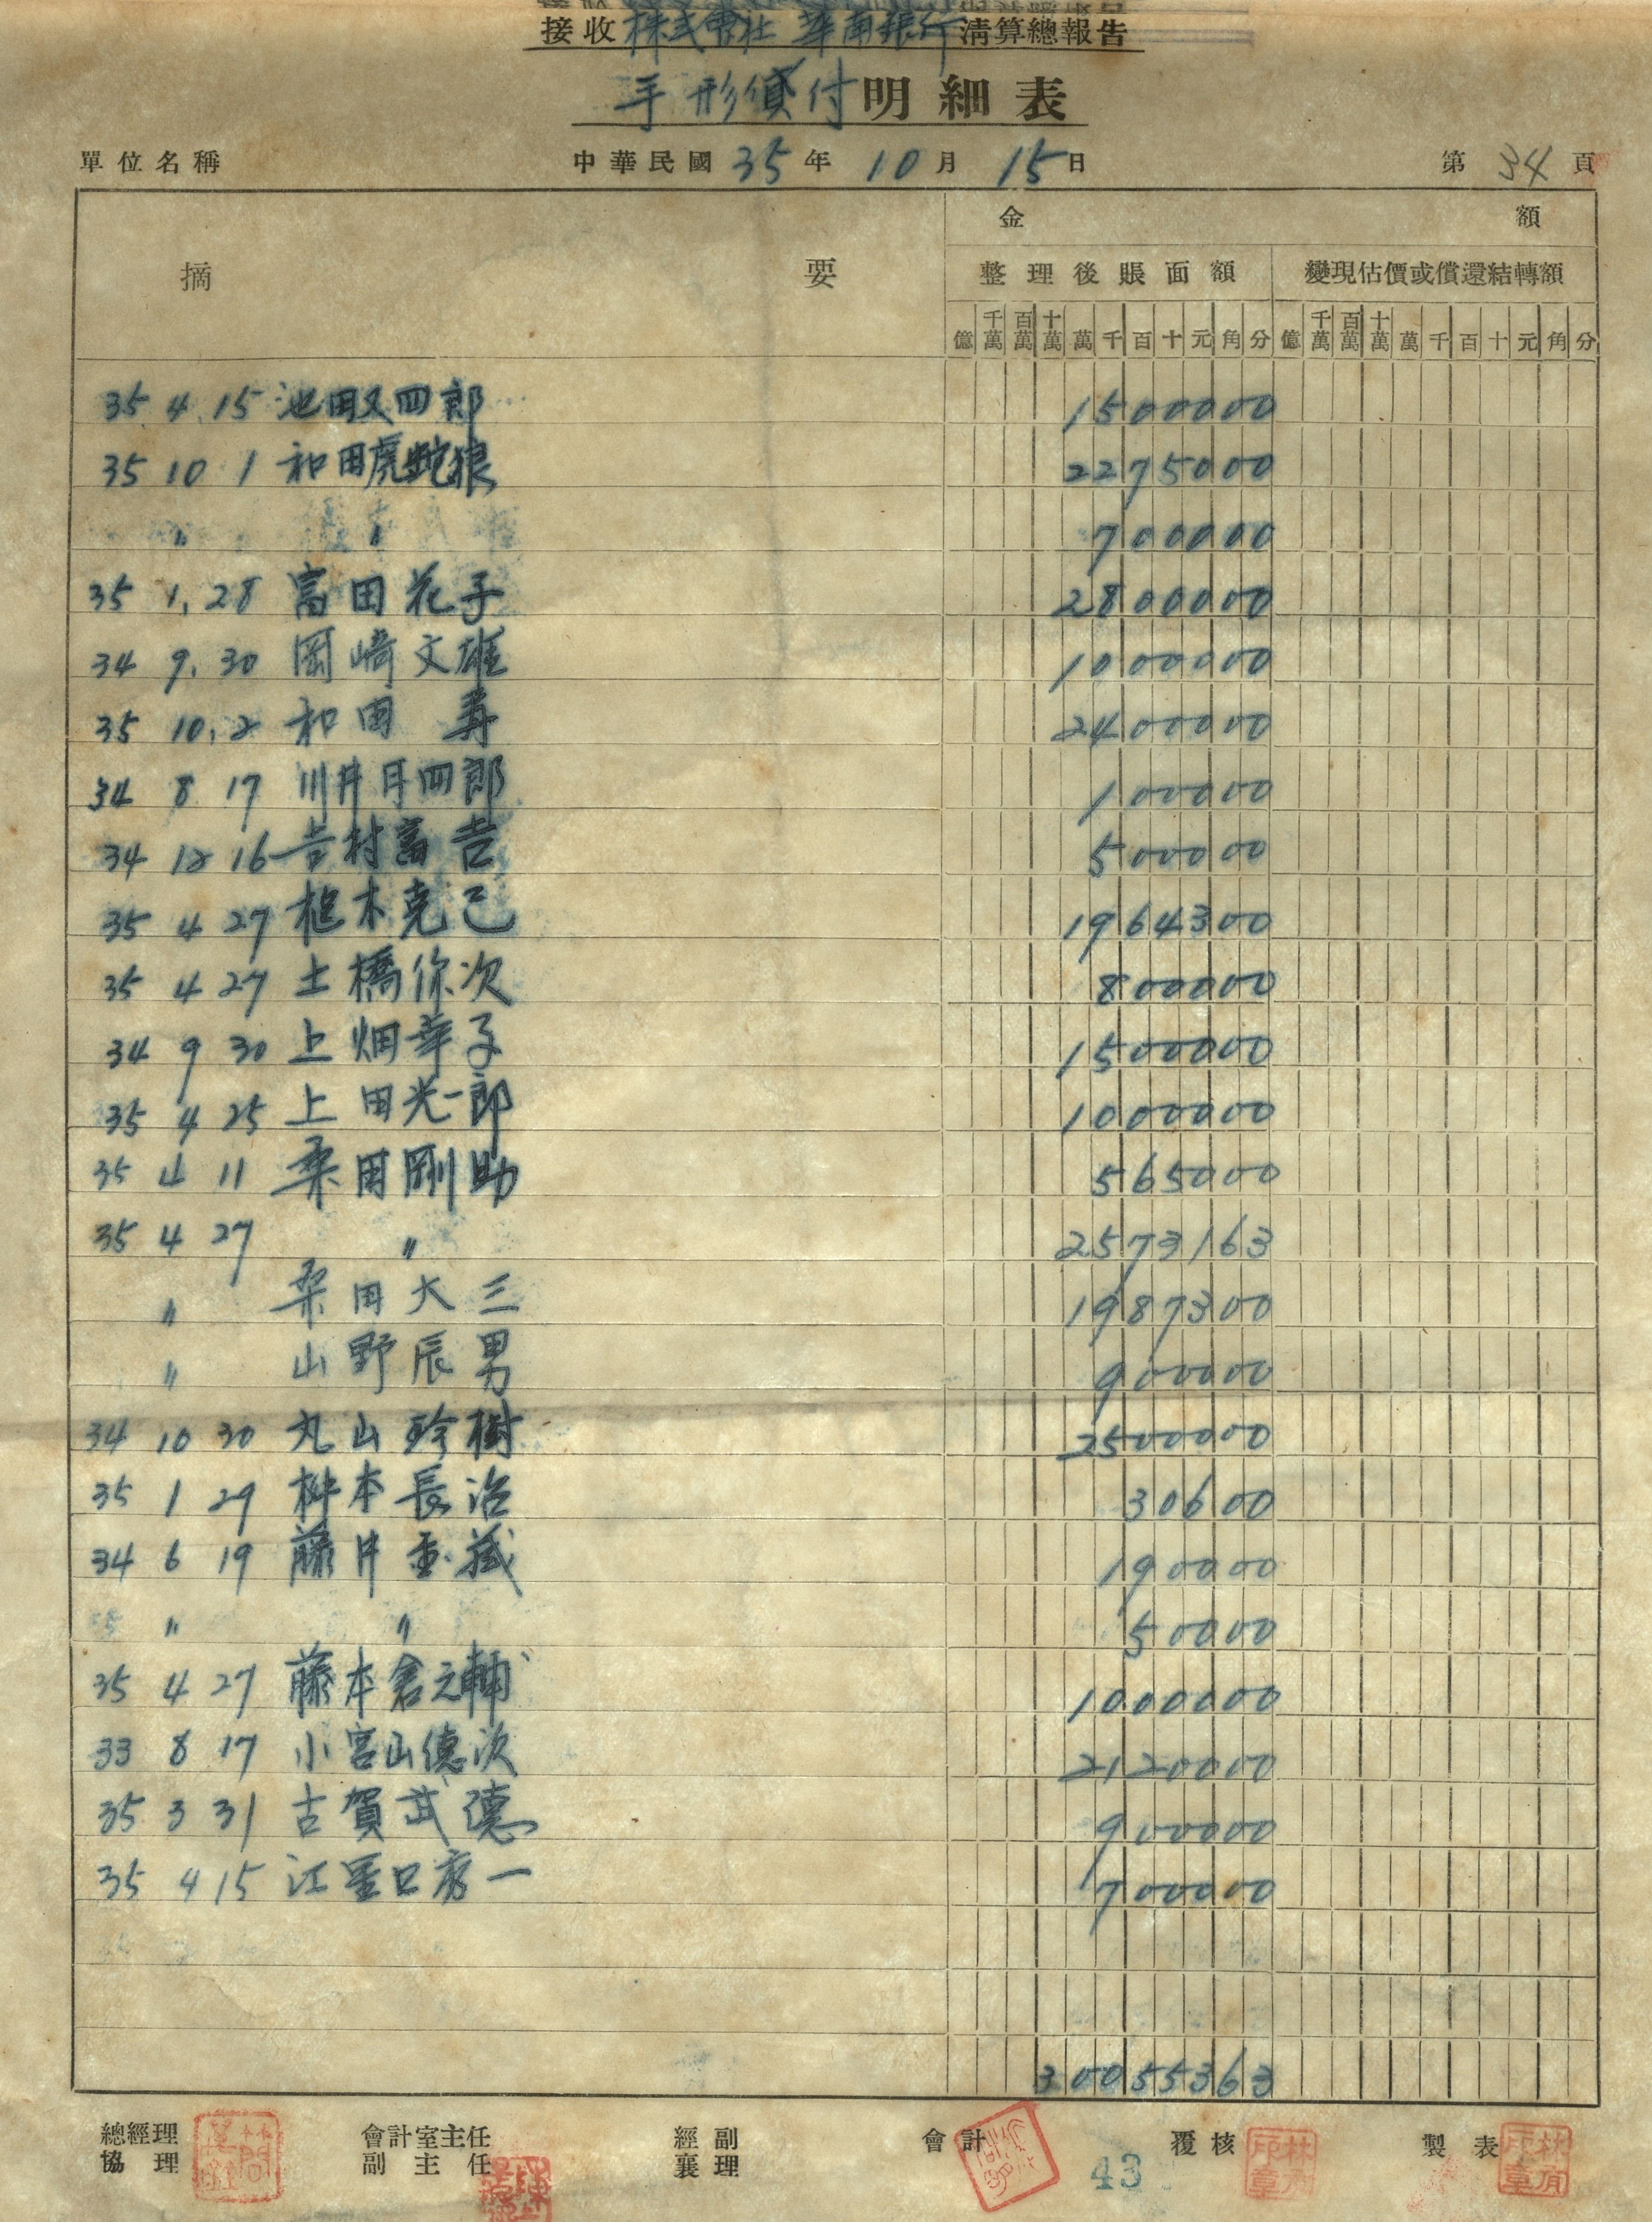 接收株式會社華南銀行清算總報告
手形貸付明細表
單位名稱 中華民國35年10月15日 第34頁
摘要 金額
整理後賬面額 變現估價或償還結轉額
億 千萬 百萬 十萬 萬 千 百 十 元 角 分 億 千萬 百萬 十萬 萬 千 百 十 元 角 分
35 4.15 池田又四郎 1500000
35 10 1 和田虎蛇狼 2275000
〃 〃 700000
35 1.28 富田花子 2800000
34 9.30 岡崎文雄 1000000
35 10.2 和田 壽 2400000
34 8 17 川井丹四郎 100000
34 12 16 吉村富吉 500000
35 4 27 植木克己 1964300
35 4 27 土橋弥次 800000
34 9 30 上畑幸子 1500000
35 4 25 上田光一郎 1000000
35 4 11 桑田剛助 565000
35 4 27 〃 2573163
〃 桑田大三 1987300
〃 山野辰男 900000
34 10 30 丸山 樹 2500000
35 1 29 桝本長治 30600
34 6 19 藤井重藏 190000
〃 〃 50000
35 4 27 藤本倉之輔 1000000
33 8 17 小宮山德次 2120000
35 3 31 古賀武德 900000
35 4 15 江里口秀一 700000
30055363
總經理 會計室主任 經副 會計 覆核 製表
協理 副主任 襄理
43